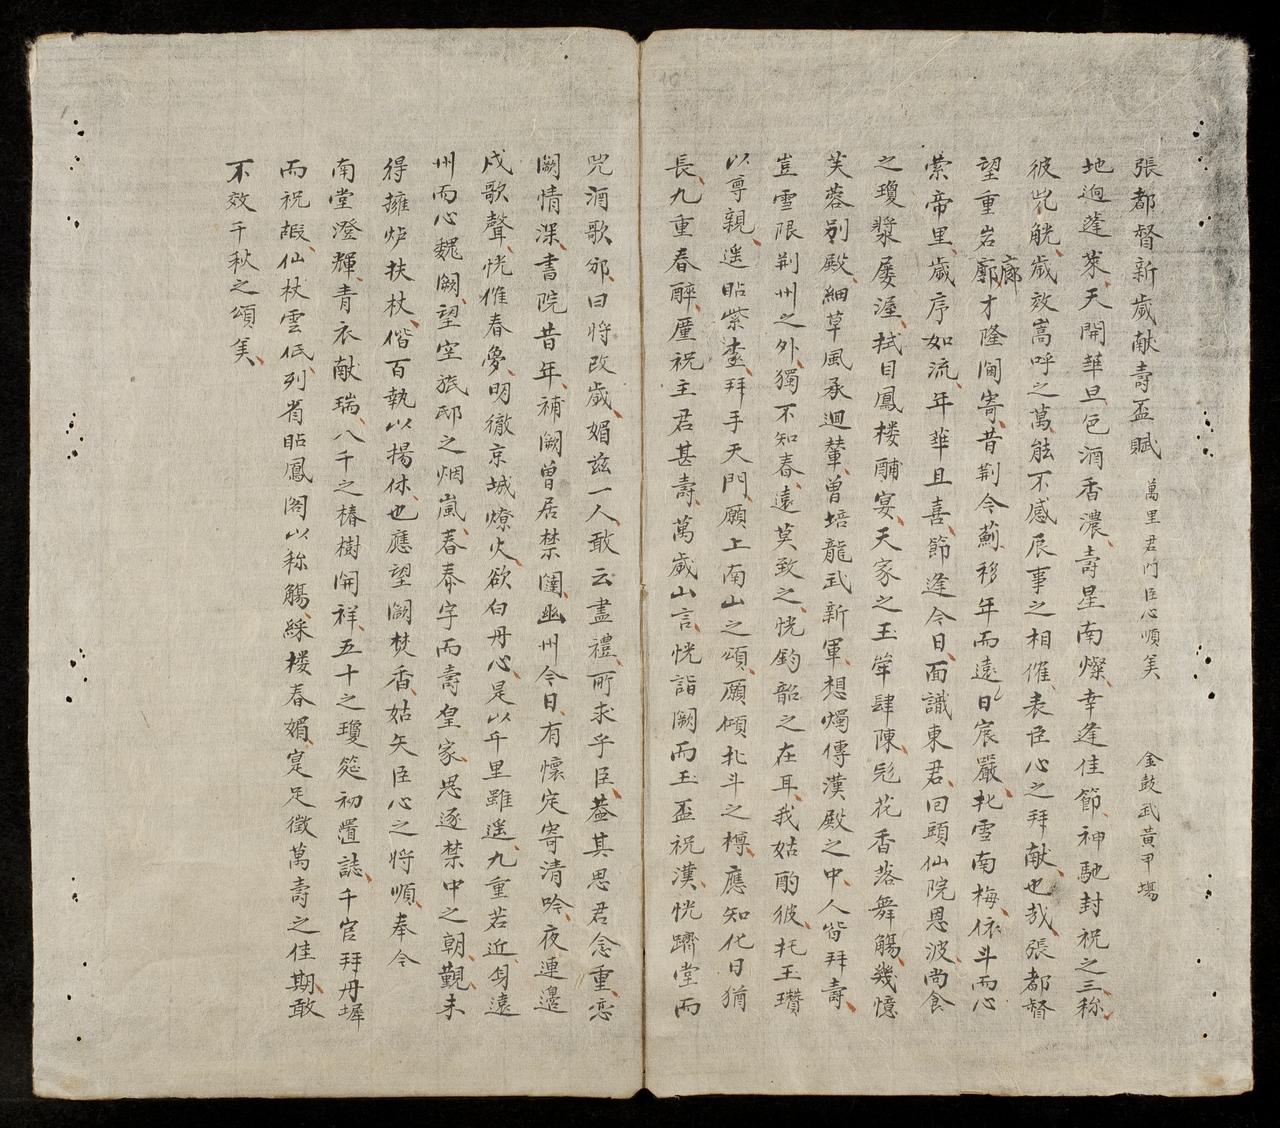 張都督新歲献壽盃賦 萬里君門臣心順美 金鼓武黃甲場
地迥蓬萊天開華旦色酒香濃壽星南燦幸逢佳節神馳封祝之三称
彼兕觥歲效嵩呼之萬能不感辰事之相催表臣心之拜献也哉張都督
望重岩廊才隆閫寄昔荆今薊移年而遠日宸嚴北雪南梅依斗而心
縈帝里歲序如流年華且喜節逢今日面識東君回頭仙院恩波尚食
之瓊漿屡渥拭目鳳楼酺宴天家之玉斝肆陳彩花香落舞觴幾憶
芙蓉别殿細草風承迴輦曾培龍武新軍想燭傳漢殿之中人皆拜壽
豈雪限荆州之外獨不知春遠莫致之恍鈞韶之在耳我姑酌彼托玉瓚
以尊親遥瞻紫 拜手天門願上南山之頌願傾北斗之樽應知化日猶
長九重春醉壓祝主君甚壽萬歲山言恍詣闕而玉盃祝漢恍躋堂而
兕酒歌邠曰将改歲媚兹一人敢云盡禮所求乎臣葢其思君念重恋
闕情深書院昔年補闕曾居禁闥幽州今日有懷定寄清吟夜連邊
戍歌聲恍惟春夢明徹京城燎火欲白丹心是以千里雖遥九重若近身遠
州而心魏闕望空旅邸之烟嵐春奉字而壽皇家思逐禁中之朝覲未
得擁炉扶杖偕百執以揚休也應望闕焚香姑矢臣心之将順奉今
南堂澄輝青衣献瑞八千之椿樹開祥五十之瓊筵初置誌千官拜丹墀
而祝嘏仙杖雲低列省瞻鳳閣以称觴綵楼春媚寔足徵萬壽之佳期敢
不效千秋之頌美